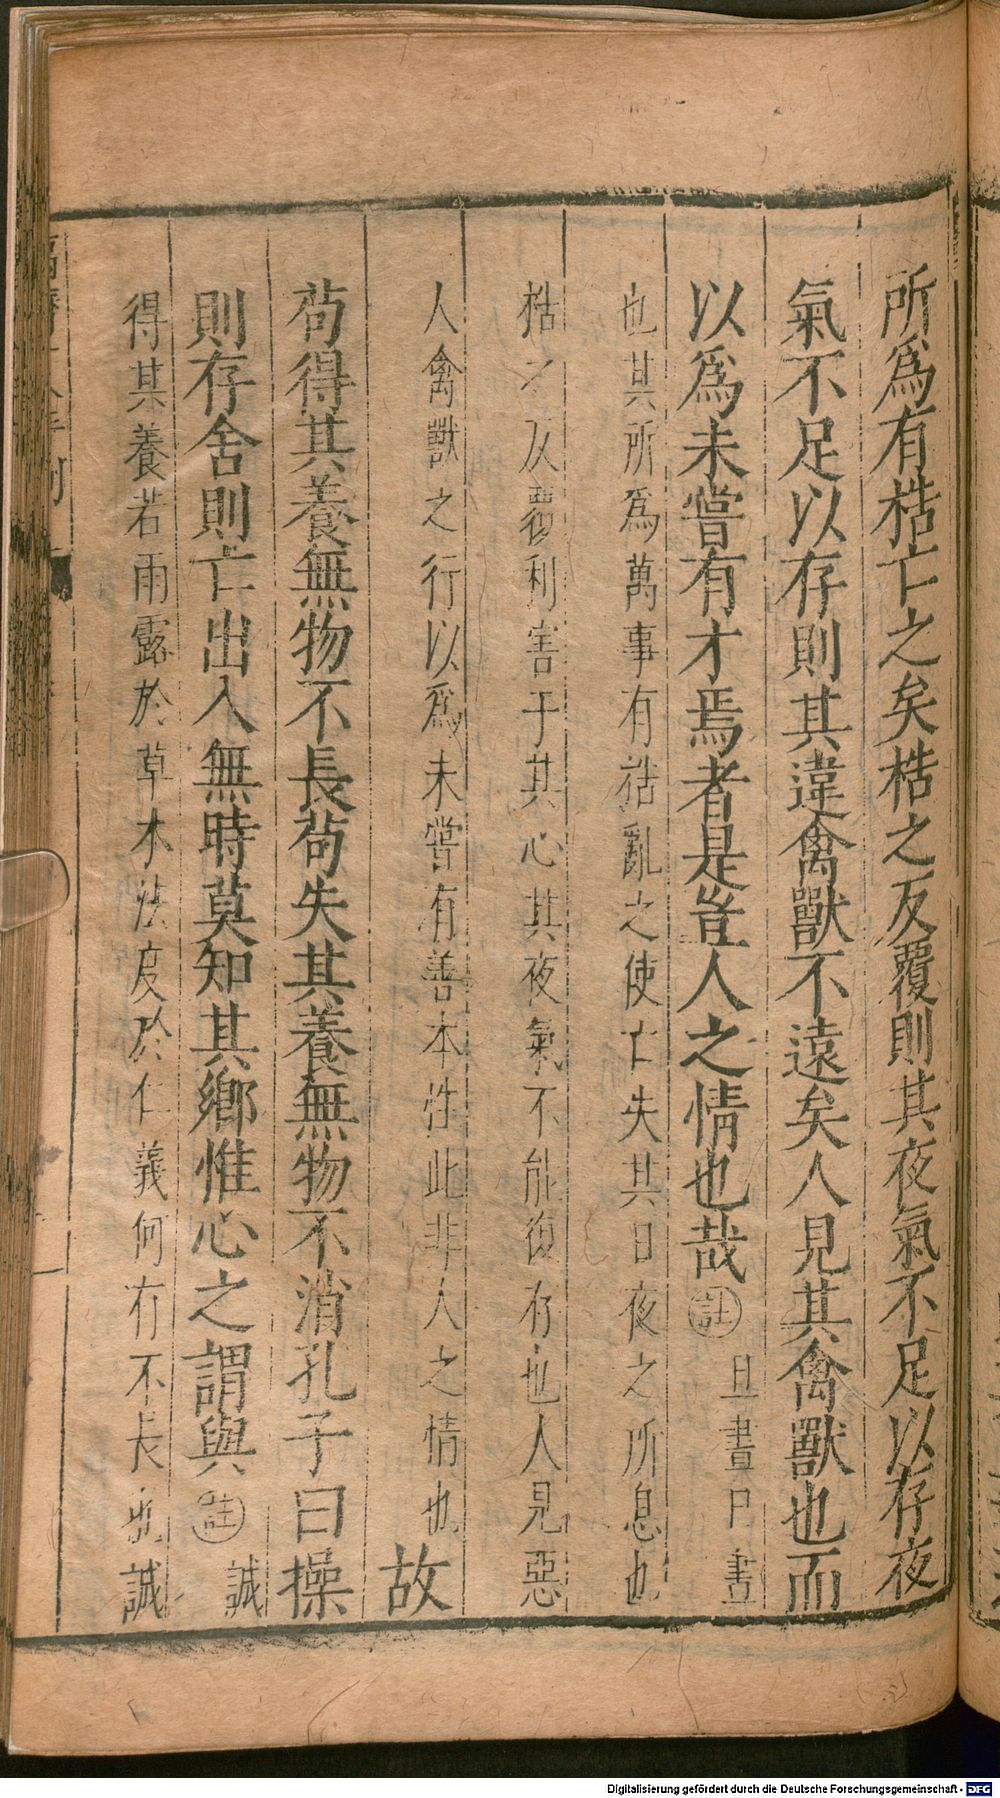 所爲有梏亡之矣梏之反覆則其夜氣不足以存夜
氣不足以存則其違禽獸不遠矣人見其禽獸也而
以爲未嘗有才焉者是豈人之情也哉註旦晝日晝
也其所爲萬事有梏亂之使亡失其日夜之所息也
梏之反覆利害于其心其夜氣不能復存也人見惡
人禽獸之行以爲未嘗有善本性此非人之情也故
苟得其養無物不長苟失其養無物不消孔子曰操
則存舍則亡出入無時莫知其鄉惟心之謂與註誠
得其養若雨露於草木法度於仁義何有不長也誠
Digitalisierung gefördert durch die Deutsche Forschungsgemeinschaft - DFG